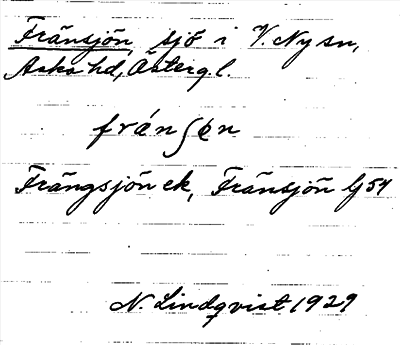 Fränsjön, sjö i V. Ny sn,
Aska hd, Östergl.
Frängsjön ek, Fränsjön G 54
N. Lindqvist 1929